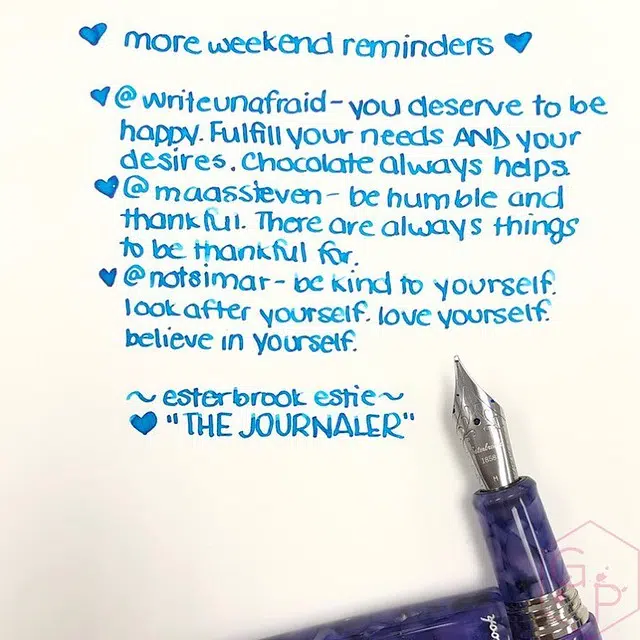 ♥ more weekend reminders ♥
♥ @writeunafraid - you deserve to be
happy. Fulfill your needs AND your
desires. Chocolate always helps.
♥ @maassteven - be humble and
thankful. There are always things
to be thankful for.
♥ @notsimar - be kind to yourself.
look after yourself. love yourself.
believe in yourself.
~ esterbrook estie ~
♥ "THE JOURNALER"
Esterbrook
1858
ook
G P